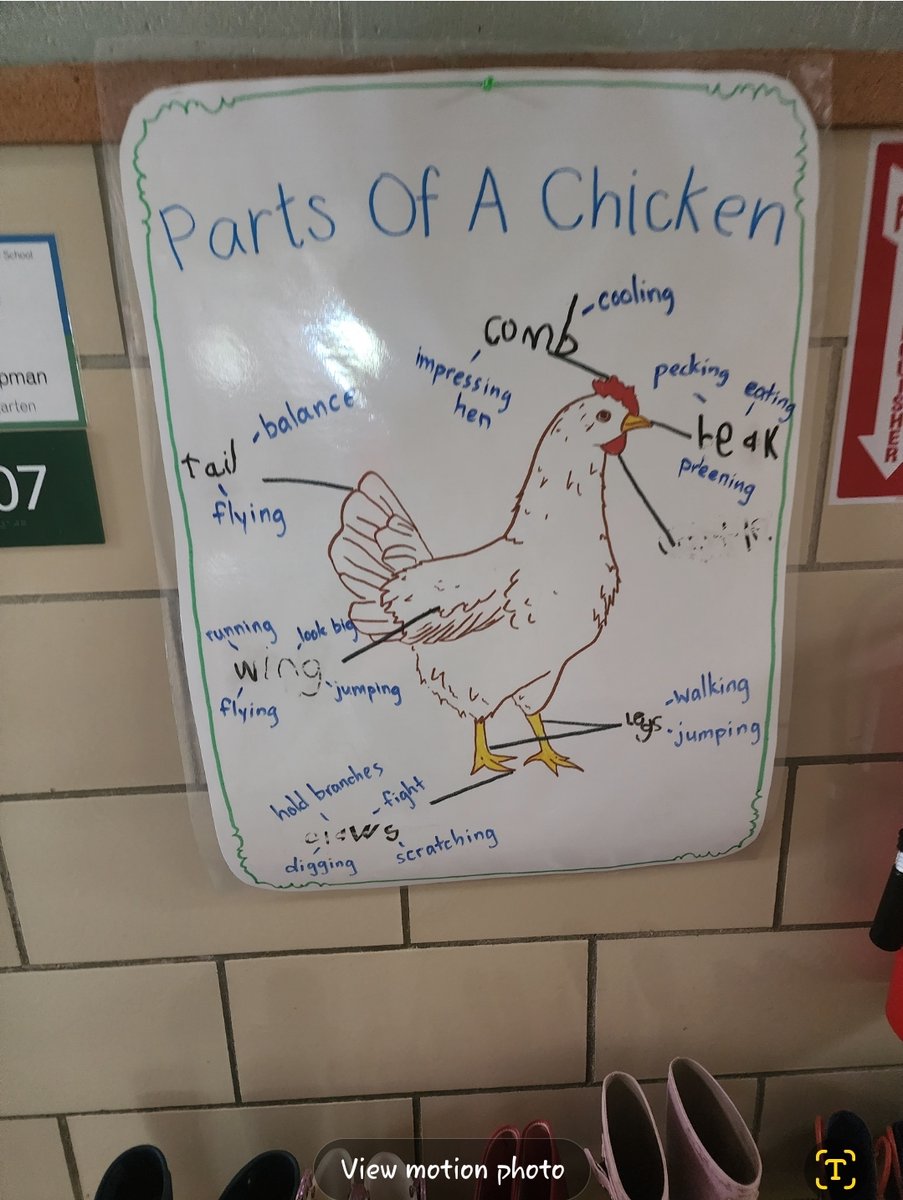 Parts Of A Chicken
comb
-cooling
impressing
hen
pecking
eating
beak
preening
tail
-balance
flying
running
look big
wing
jumping
flying
legs
-walking
-jumping
hold branches
-fight
claws
digging
scratching
School
pman
arten
07
View motion photo
T